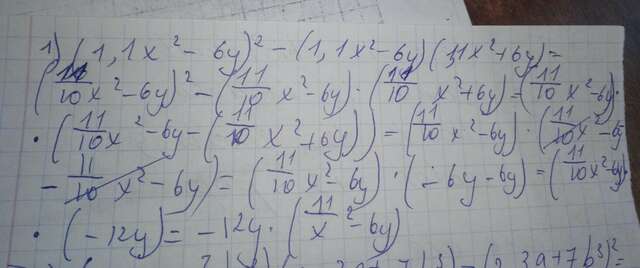 1) (1,1x² - 6y)² - (1,1x² - 6y)(1,1x² + 6y) =
(11/10 x² - 6y)² - (11/10 x² - 6y) · (11/10 x² + 6y) = (11/10 x² - 6y) ·
· (11/10 x² - 6y - (11/10 x² + 6y)) = (11/10 x² - 6y) · (11/10 x² - 6y
- 11/10 x² - 6y) = (11/10 x² - 6y) · (- 6y - 6y) = (11/10 x² - 6y) ·
· (-12y) = -12y · (11/x² - 6y)